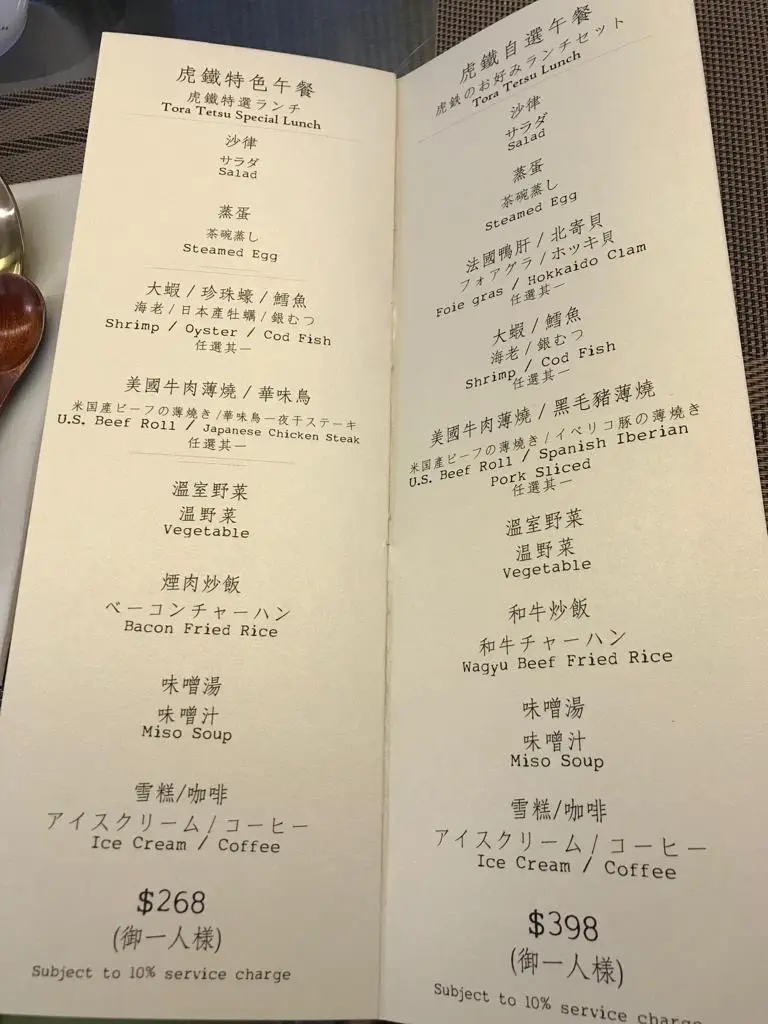 虎鐵特色午餐
虎鐵特選ランチ
Tora Tetsu Special Lunch
沙律
サラダ
Salad
蒸蛋
茶碗蒸し
Steamed Egg
大蝦/珍珠蠔/鱈魚
海老/日本產牡蠣/銀むつ
Shrimp / Oyster / Cod Fish
任選其一
美國牛肉薄燒/華味鳥
米国産ビーフの薄焼き/華味鳥一夜干ステーキ
U.S. Beef Roll / Japanese Chicken Steak
任選其一
溫室野菜
温野菜
Vegetable
煙肉炒飯
ベーコンチャーハン
Bacon Fried Rice
味噌湯
味噌汁
Miso Soup
雪糕/咖啡
アイスクリーム/コーヒー
Ice Cream / Coffee
$268
(御一人様)
Subject to 10% service charge
虎鐵自選午餐
虎鉄のお好みランチセット
Tora Tetsu Lunch
沙律
サラダ
Salad
蒸蛋
茶碗蒸し
Steamed Egg
法國鴨肝/北寄貝
フォアグラ/ホッキ貝
Foie gras / Hokkaido Clam
任選其一
大蝦/鱈魚
海老/銀むつ
Shrimp / Cod Fish
任選其一
美國牛肉薄燒/黑毛豬薄燒
米国産ビーフの薄焼き/イベリコ豚の薄焼き
U.S. Beef Roll / Spanish Iberian
Pork Sliced
任選其一
溫室野菜
温野菜
Vegetable
和牛炒飯
和牛チャーハン
Wagyu Beef Fried Rice
味噌湯
味噌汁
Miso Soup
雪糕/咖啡
アイスクリーム/コーヒー
Ice Cream / Coffee
$398
(御一人様)
Subject to 10% service charge